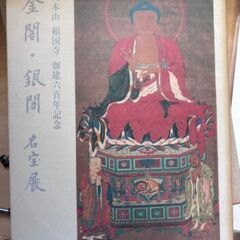 本山 相国寺 創建六百年記念
金閣・銀閣 名宝展